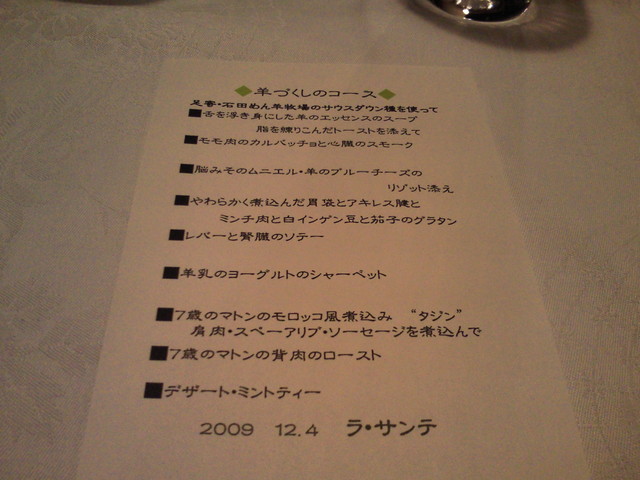 ◆羊づくしのコース◆
足寄・石田めん羊牧場のサウスダウン種を使って
■舌を浮き身にした羊のエッセンスのスープ
脂を練りこんだトーストを添えて
■モモ肉のカルパッチョと心臓のスモーク
■脳みそのムニエル・羊のブルーチーズの
リゾット添え
■やわらかく煮込んだ胃袋とアキレス腱と
ミンチ肉と白インゲン豆と茄子のグラタン
■レバーと腎臓のソテー
■羊乳のヨーグルトのシャーベット
■7歳のマトンのモロッコ風煮込み “タジン”
肩肉・スペーアリブ・ソーセージを煮込んで
■7歳のマトンの背肉のロースト
■デザート・ミントティー
2009 12.4 ラ・サンテ